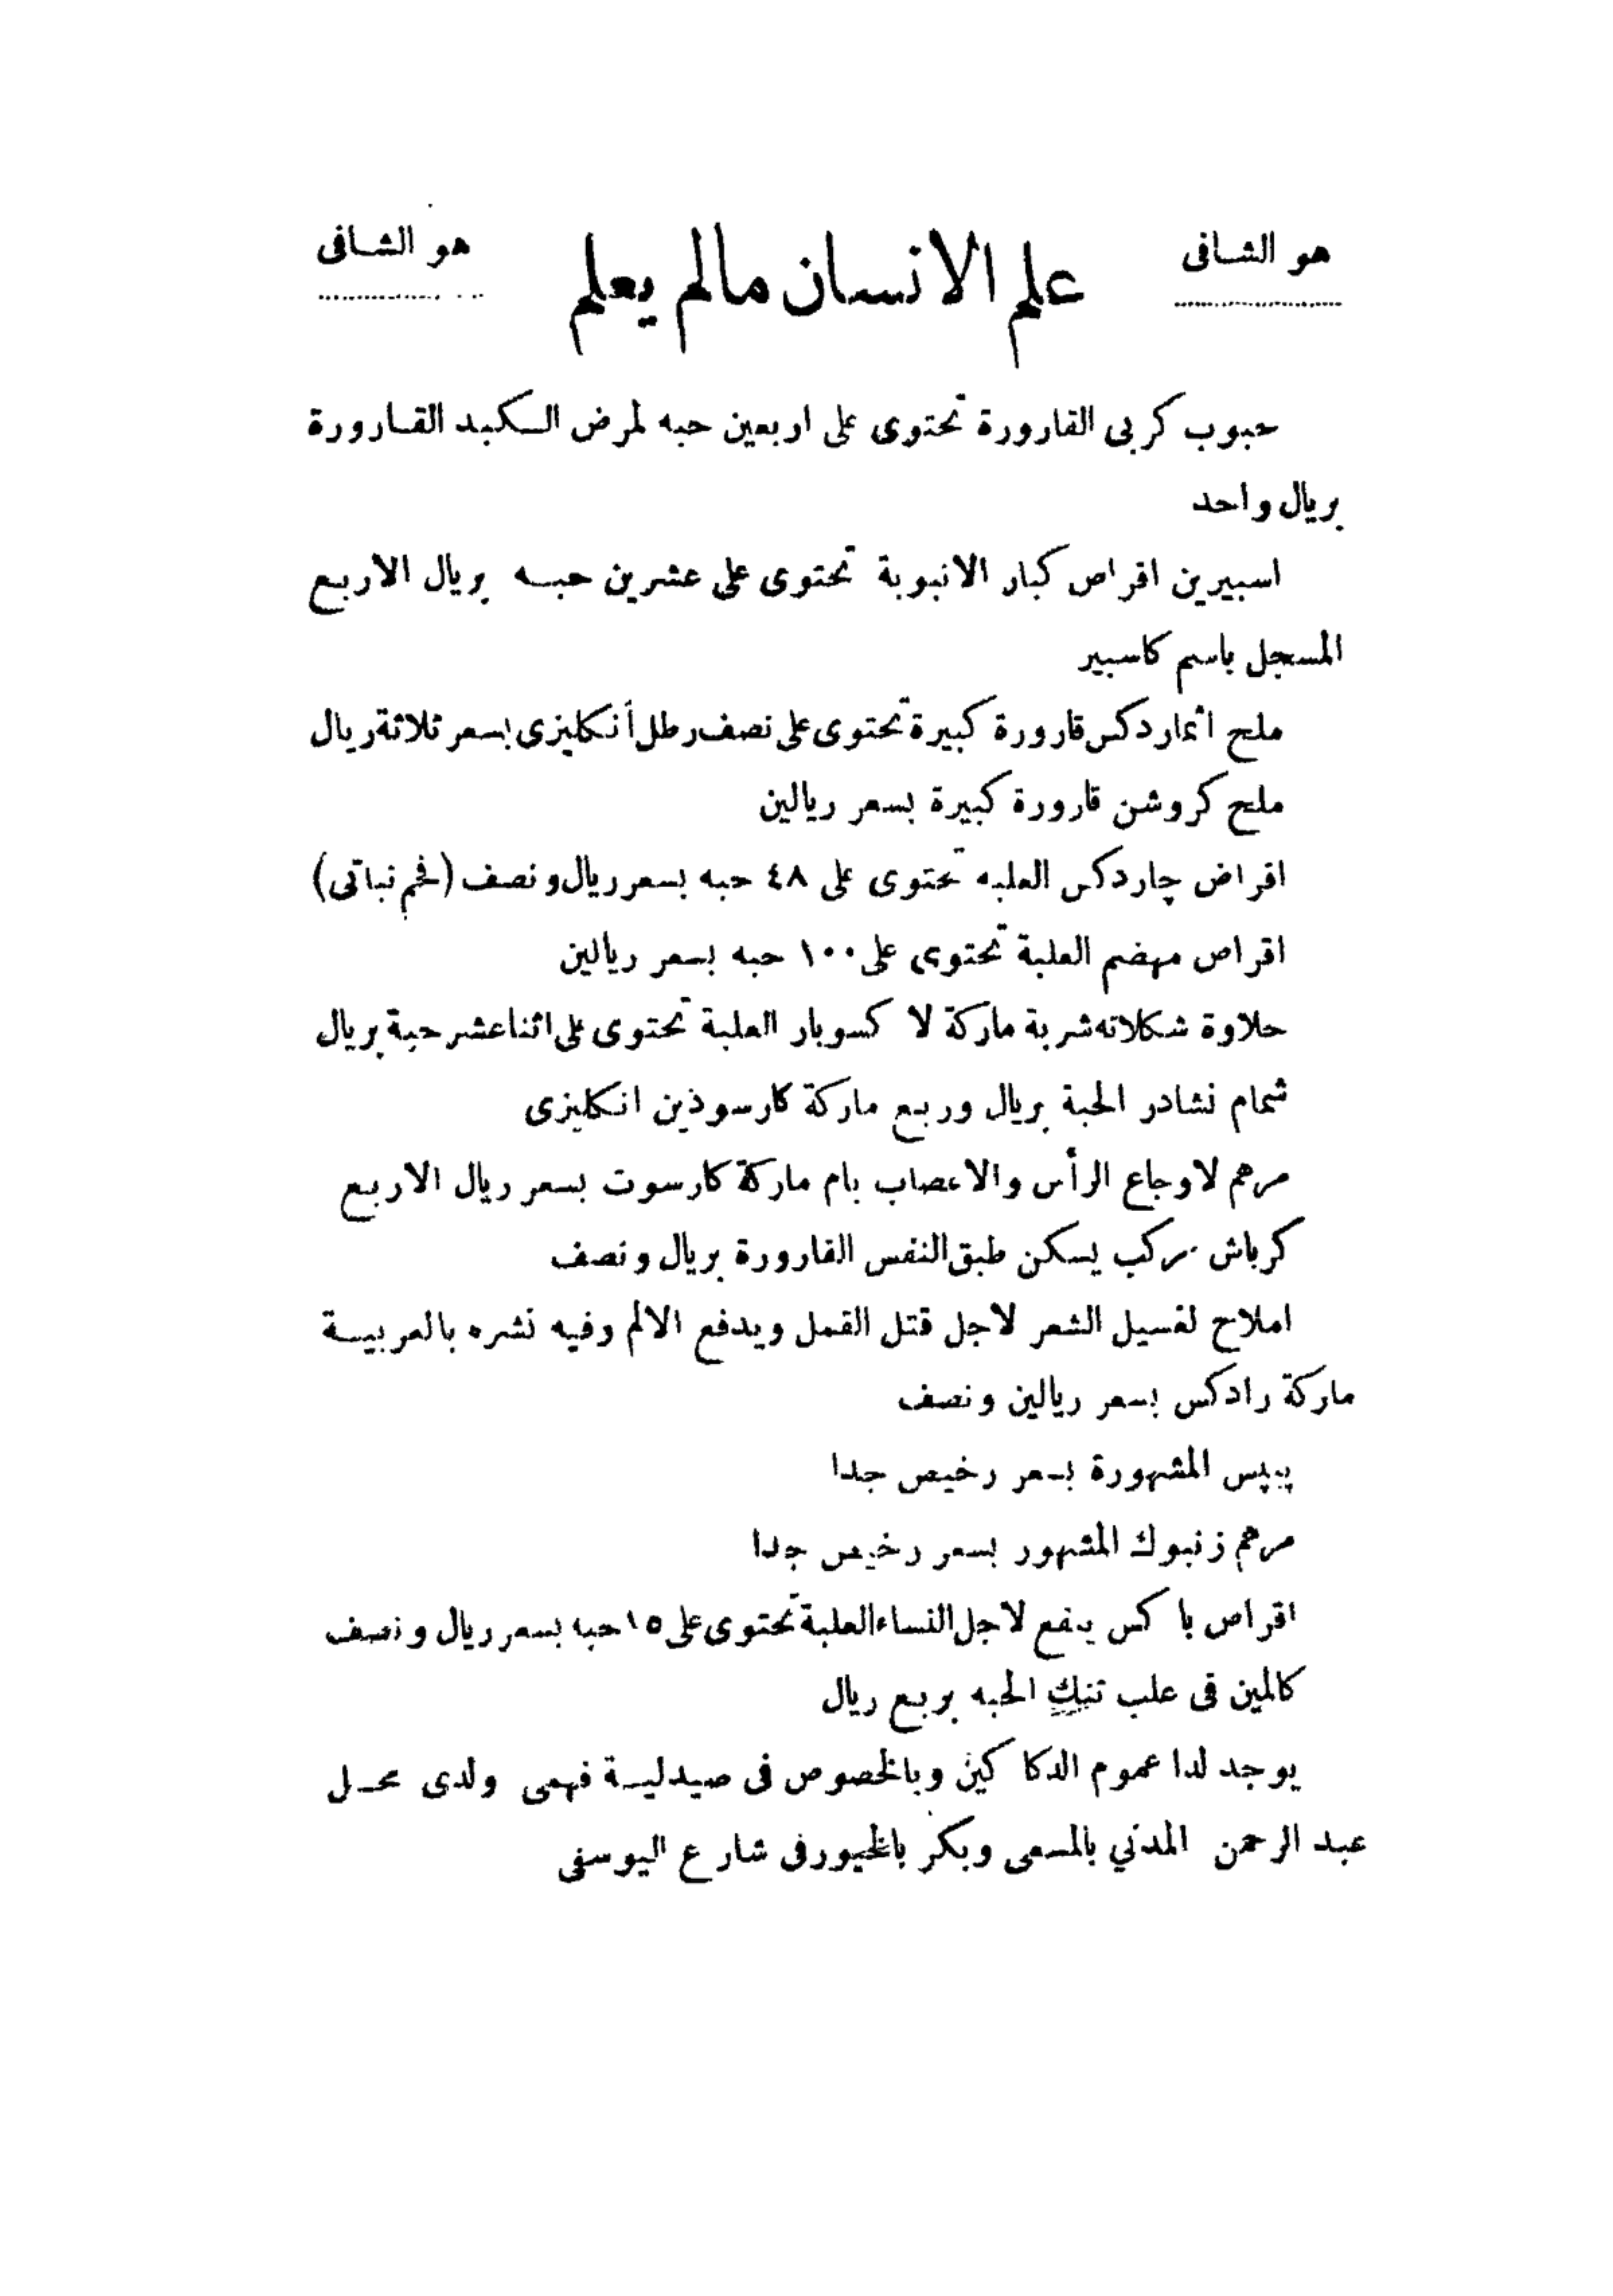 هو الشافى
علم الانسان مالم يعلم
هو الشافى
حبوب كربى القارورة تحتوى على اربعين حبه لمرض الكبد القارورة
بريال واحد
اسبيرين اقراص كبار الانبوبة تحتوى على عشرين حبه بريال الاربع
المسجل باسم كاسبير
ملح اثمار دكس قارورة كبيرة تحتوى على نصف رطل أنكليزى بسعر ثلاثة ريال
ملح كروشن قارورة كبيرة بسعر ريالين
اقراض چاردكس العلبه تحتوى على ٤٨ حبه بسعر ريال ونصف (فحم نباتى)
اقراص مهضم العلبة تحتوى على ١٠٠ حبه بسعر ريالين
حلاوة شكلاته شربة ماركة لا كسوبار العلبة تحتوى على اثنا عشر حبة بريال
شمام نشادر الحبة بريال وربع ماركة كارسوذين انكليزى
مرهم لاوجاع الرأس والاعصاب بام ماركة كارسوت بسعر ريال الاربع
كرباش بركب يسكن طبق النفس القارورة بريال ونصف
املاح لغسيل الشعر لاجل قتل القمل ويدفع الالم وفيه نشره بالعربية
ماركة رادكس بسعر ريالين ونصف
پيپس المشهورة بسعر رخيص جدا
مرهم زنبوك المشهور بسعر رخيص جدا
اقراص با كس ينفع لاجل النساء العلبة تحتوى على ١٥ حبه بسعر ريال ونصف
كالمين فى علب تنك الحبه بربع ريال
يوجد لدا عموم الدكا كين وبالخصوص فى صيدلية فهمى ولدى محل
عبد الرحمن المدني بالمسعى وبكر بالخيور فى شارع اليوسفى